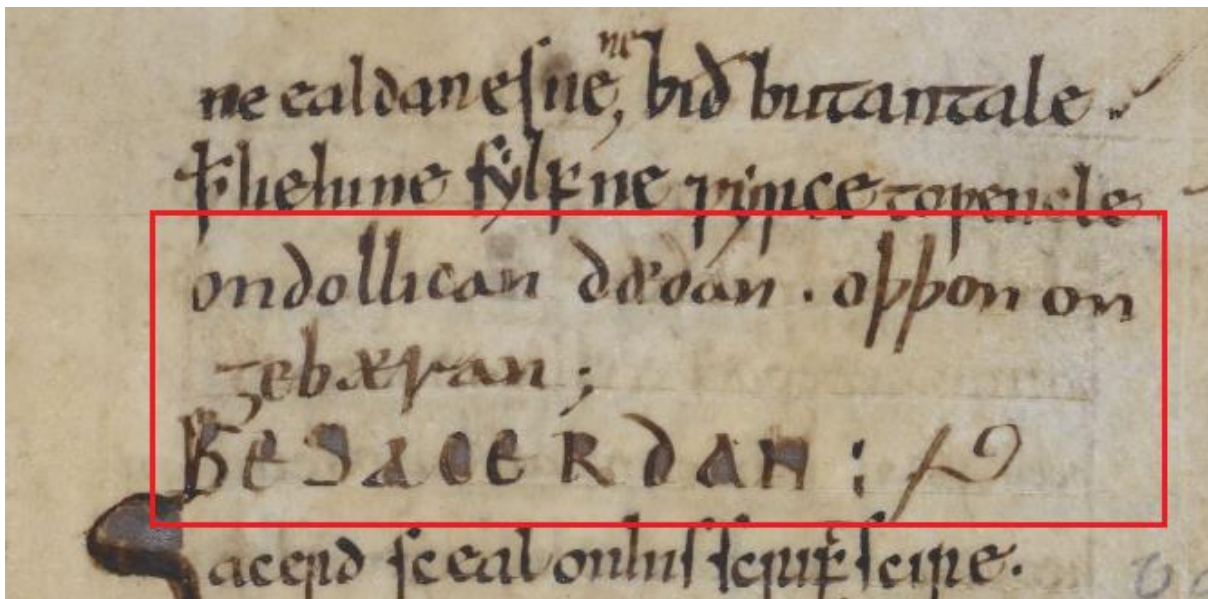 ne ealdan esne, ne bið butan tale.
ꝥ he hine sylfne ƿyrce to ƿencle
on dollican dǽdan . oþþon on
gebǽran ;
BE SACERDAN :
Sacerd sceal on his scriftscire.